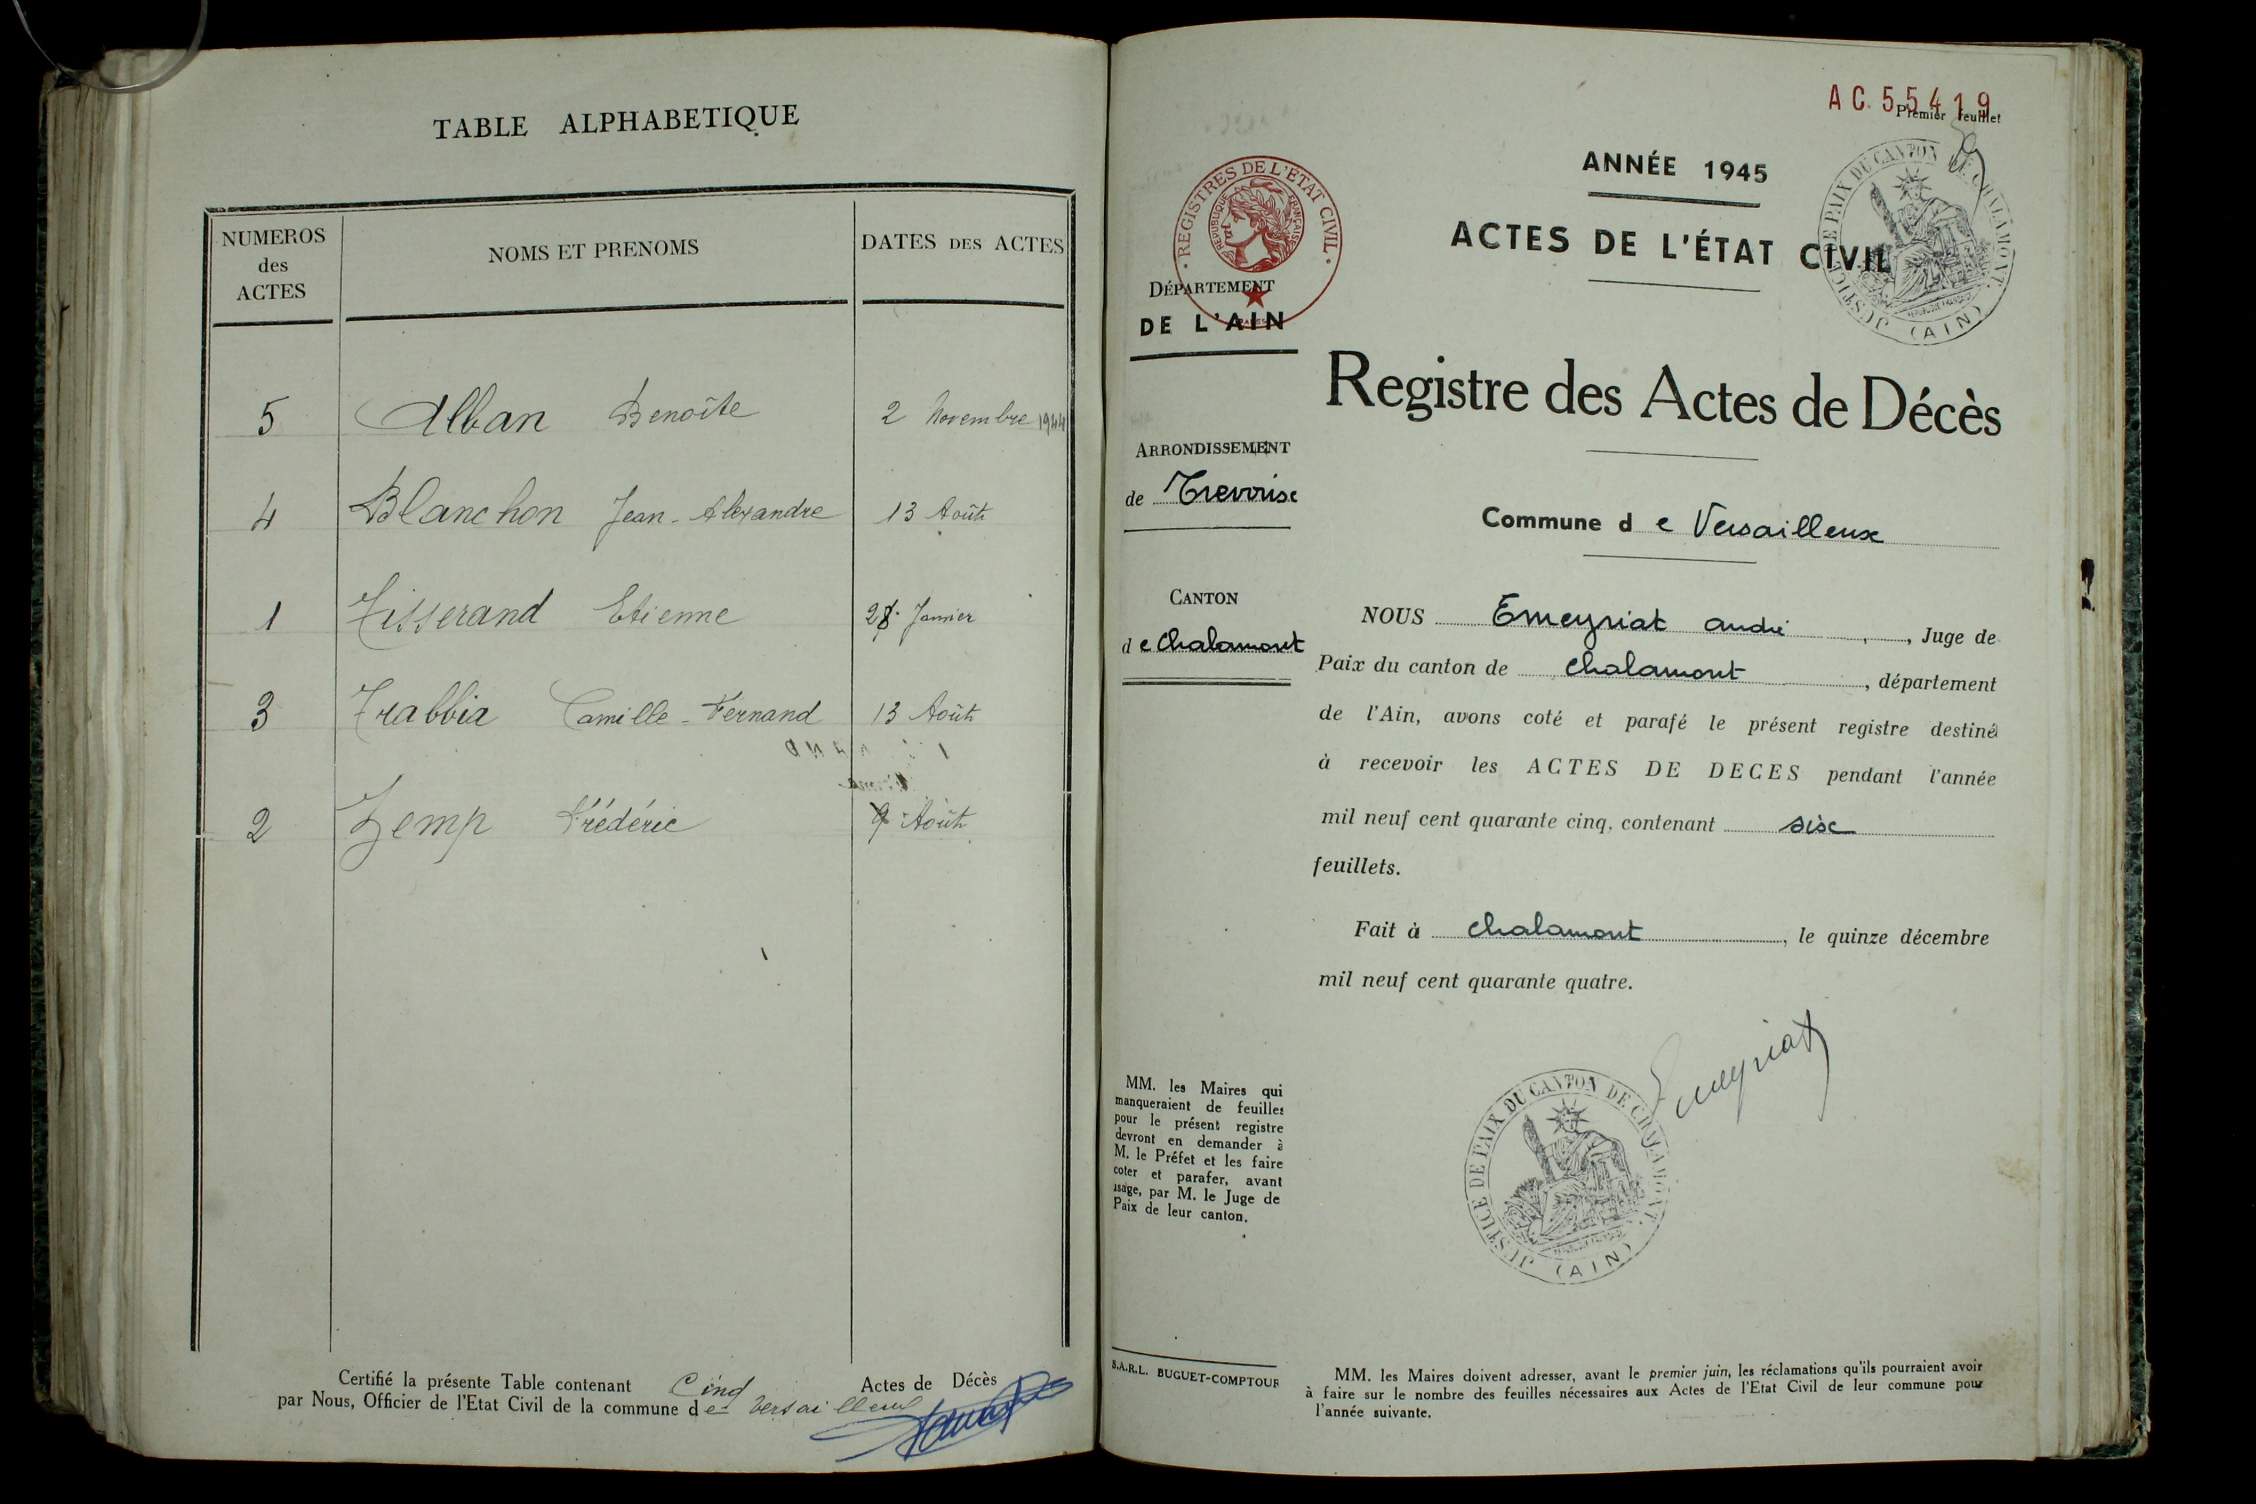 TABLE ALPHABETIQUE
NUMEROS des ACTES
NOMS ET PRENOMS
DATES DES ACTES
5 Alban Benoîte 2 Novembre 1944
4 Blanchon Jean-Alexandre 13 Août
1 Tisserand Etienne 28 Janvier
3 Trabbia Camille-Fernand 13 Août
2 Zemp Frédéric 9 Août
Certifié la présente Table contenant Cinq Actes de Décès
par Nous, Officier de l'Etat Civil de la commune de Versailleux
AC. 55419
Premier feuillet
REGISTRES DE L'ETAT CIVIL
REPUBLIQUE FRANÇAISE
JUSTICE DE PAIX DU CANTON DE CHALAMONT
(AIN)
ANNÉE 1945
ACTES DE L'ÉTAT CIVIL
DÉPARTEMENT
DE L'AIN
Registre des Actes de Décès
ARRONDISSEMENT
de Trevoux
Commune de Versailleux
CANTON
de Chalamont
NOUS Emeyriat André, Juge de
Paix du canton de Chalamont, département
de l'Ain, avons coté et parafé le présent registre destiné
à recevoir les ACTES DE DECES pendant l'année
mil neuf cent quarante cinq, contenant six
feuillets.
Fait à Chalamont, le quinze décembre
mil neuf cent quarante quatre.
Emeyriat
JUSTICE DE PAIX DU CANTON DE CHALAMONT
(AIN)
MM. les Maires qui
manqueraient de feuilles
pour le présent registre
devront en demander à
M. le Préfet et les faire
coter et parafer, avant
usage, par M. le Juge de
Paix de leur canton.
S.A.R.L. BUGUET-COMPTOUR
MM. les Maires doivent adresser, avant le premier juin, les réclamations qu'ils pourraient avoir
à faire sur le nombre des feuilles nécessaires aux Actes de l'Etat Civil de leur commune pour
l'année suivante.